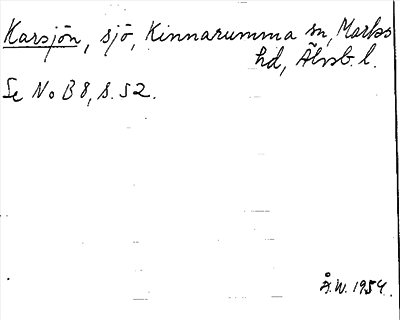 Karsjön, sjö, Kinnarumma sn, Marks
hd, Älvsb. l.
Se NoB 8, s. 52.
Å.W. 1954.